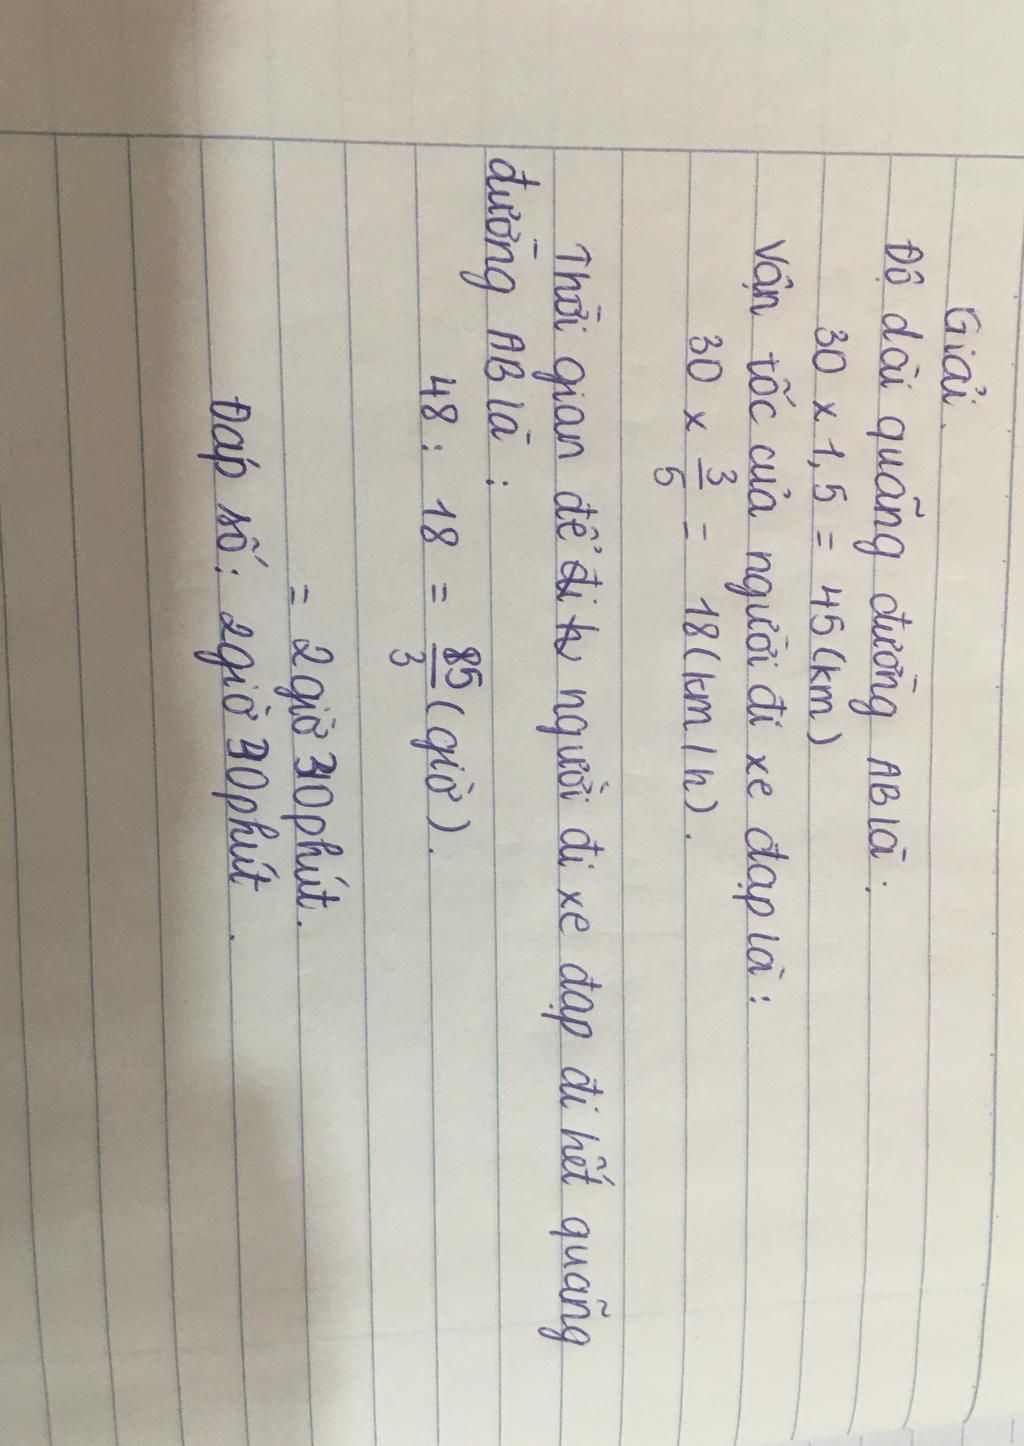 Giải.
Độ dài quãng đường AB là:
30 x 1,5 = 45 (km)
Vận tốc của người đi xe đạp là:
30 x 3/5 = 18 (km/h).
Thời gian để người đi xe đạp đi hết quãng
đường AB là:
48 : 18 = 85/3 (giờ).
= 2 giờ 30 phút.
Đáp số: 2 giờ 30 phút.